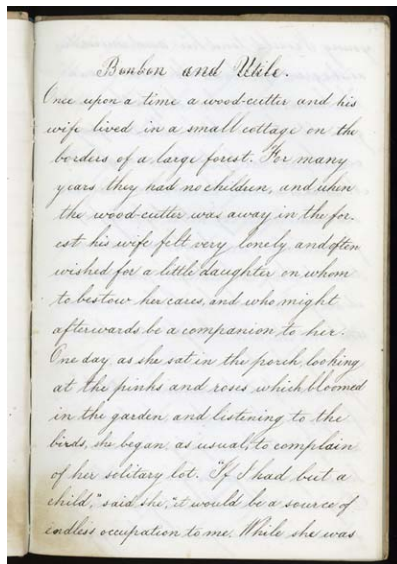 Bonbon and Utile.
Once upon a time a wood-cutter and his
wife lived in a small cottage on the
borders of a large forest. For many
years they had no children, and when
the wood-cutter was away in the for-
est his wife felt very lonely and often
wished for a little daughter on whom
to bestow her cares, and who might
afterwards be a companion to her.
One day as she sat in the porch, looking
at the pinks and roses which bloomed
in the garden and listening to the
birds, she began, as usual, to complain
of her solitary lot. "If I had but a
child," said she, "it would be a source of
endless occupation to me. While she was